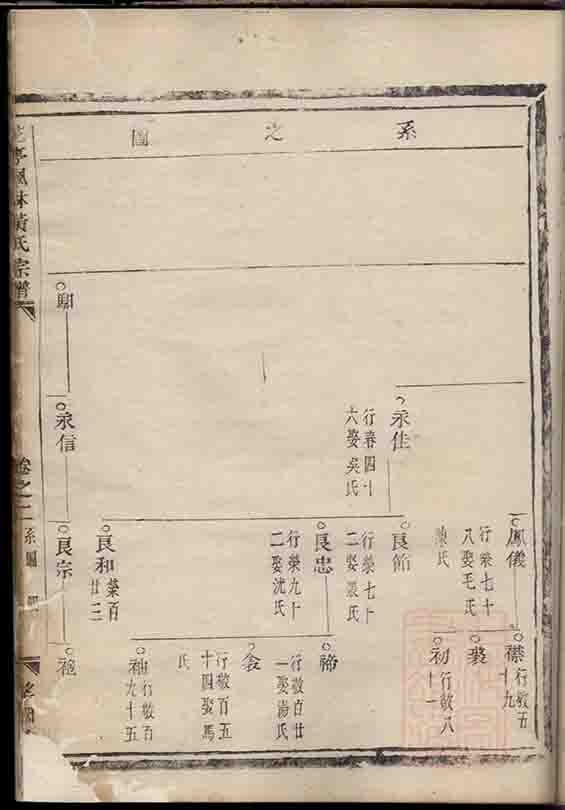 系之圖
鳳儀
行榮七十
八娶毛氏
陳氏
襟
行敬五
十九
裘
初
行敬八
十一
永佳
行春四十
六娶吳氏
良節
行榮七十
二娶張氏
良忠
行榮九十
二娶沈氏
良和
榮百
廿三
行敬百廿
一娶湯氏
衾
行敬百五
十四娶馬
氏
袖
行敬百
九十五
永信
良宗
亭楓林黃氏宗譜
卷之二
系圖